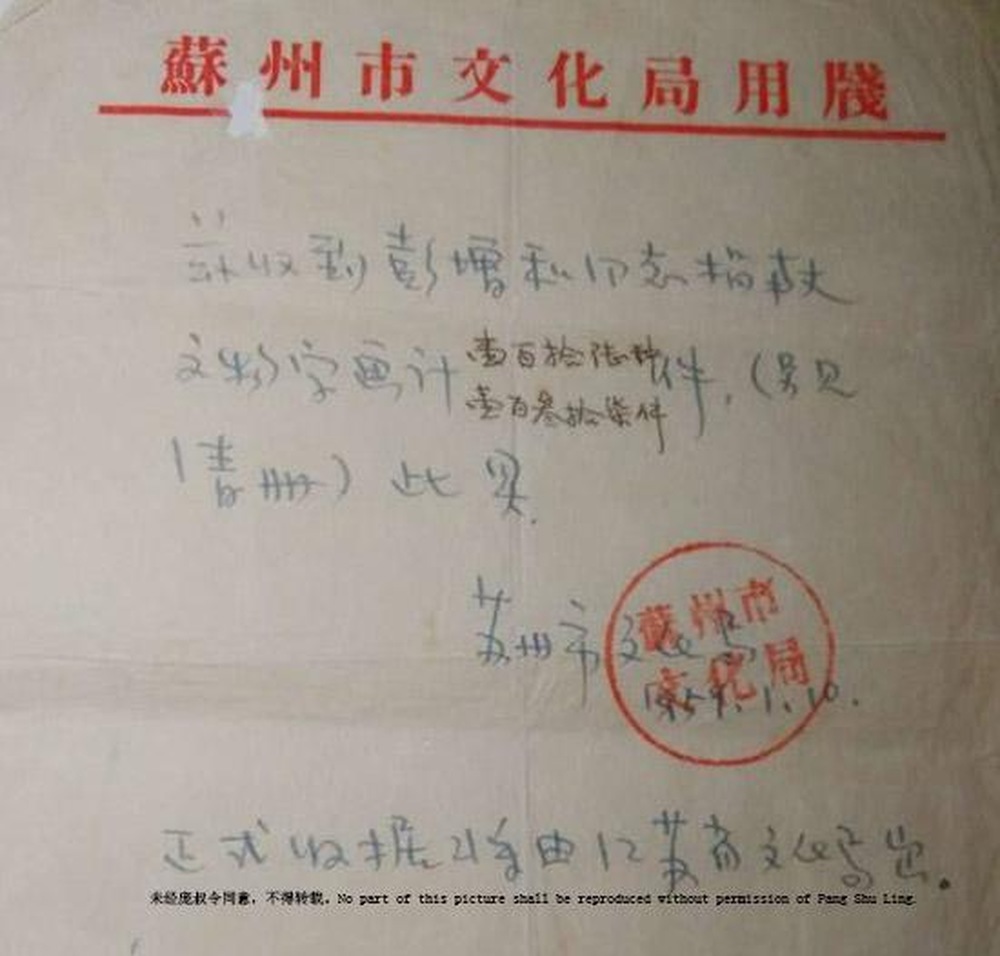 蘇州市文化局用牋
兹收到彭增和同志捐献
文物字画计壹百拾陆种件，（另见
壹百叁拾柒件
清册）此具.
苏州市文化局
蘇州市
文化局
1959.1.10.
正式收据将由江苏省文化局出。
未经庞叔令同意，不得转载。No part of this picture shall be reproduced without permission of Pang Shu Ling.